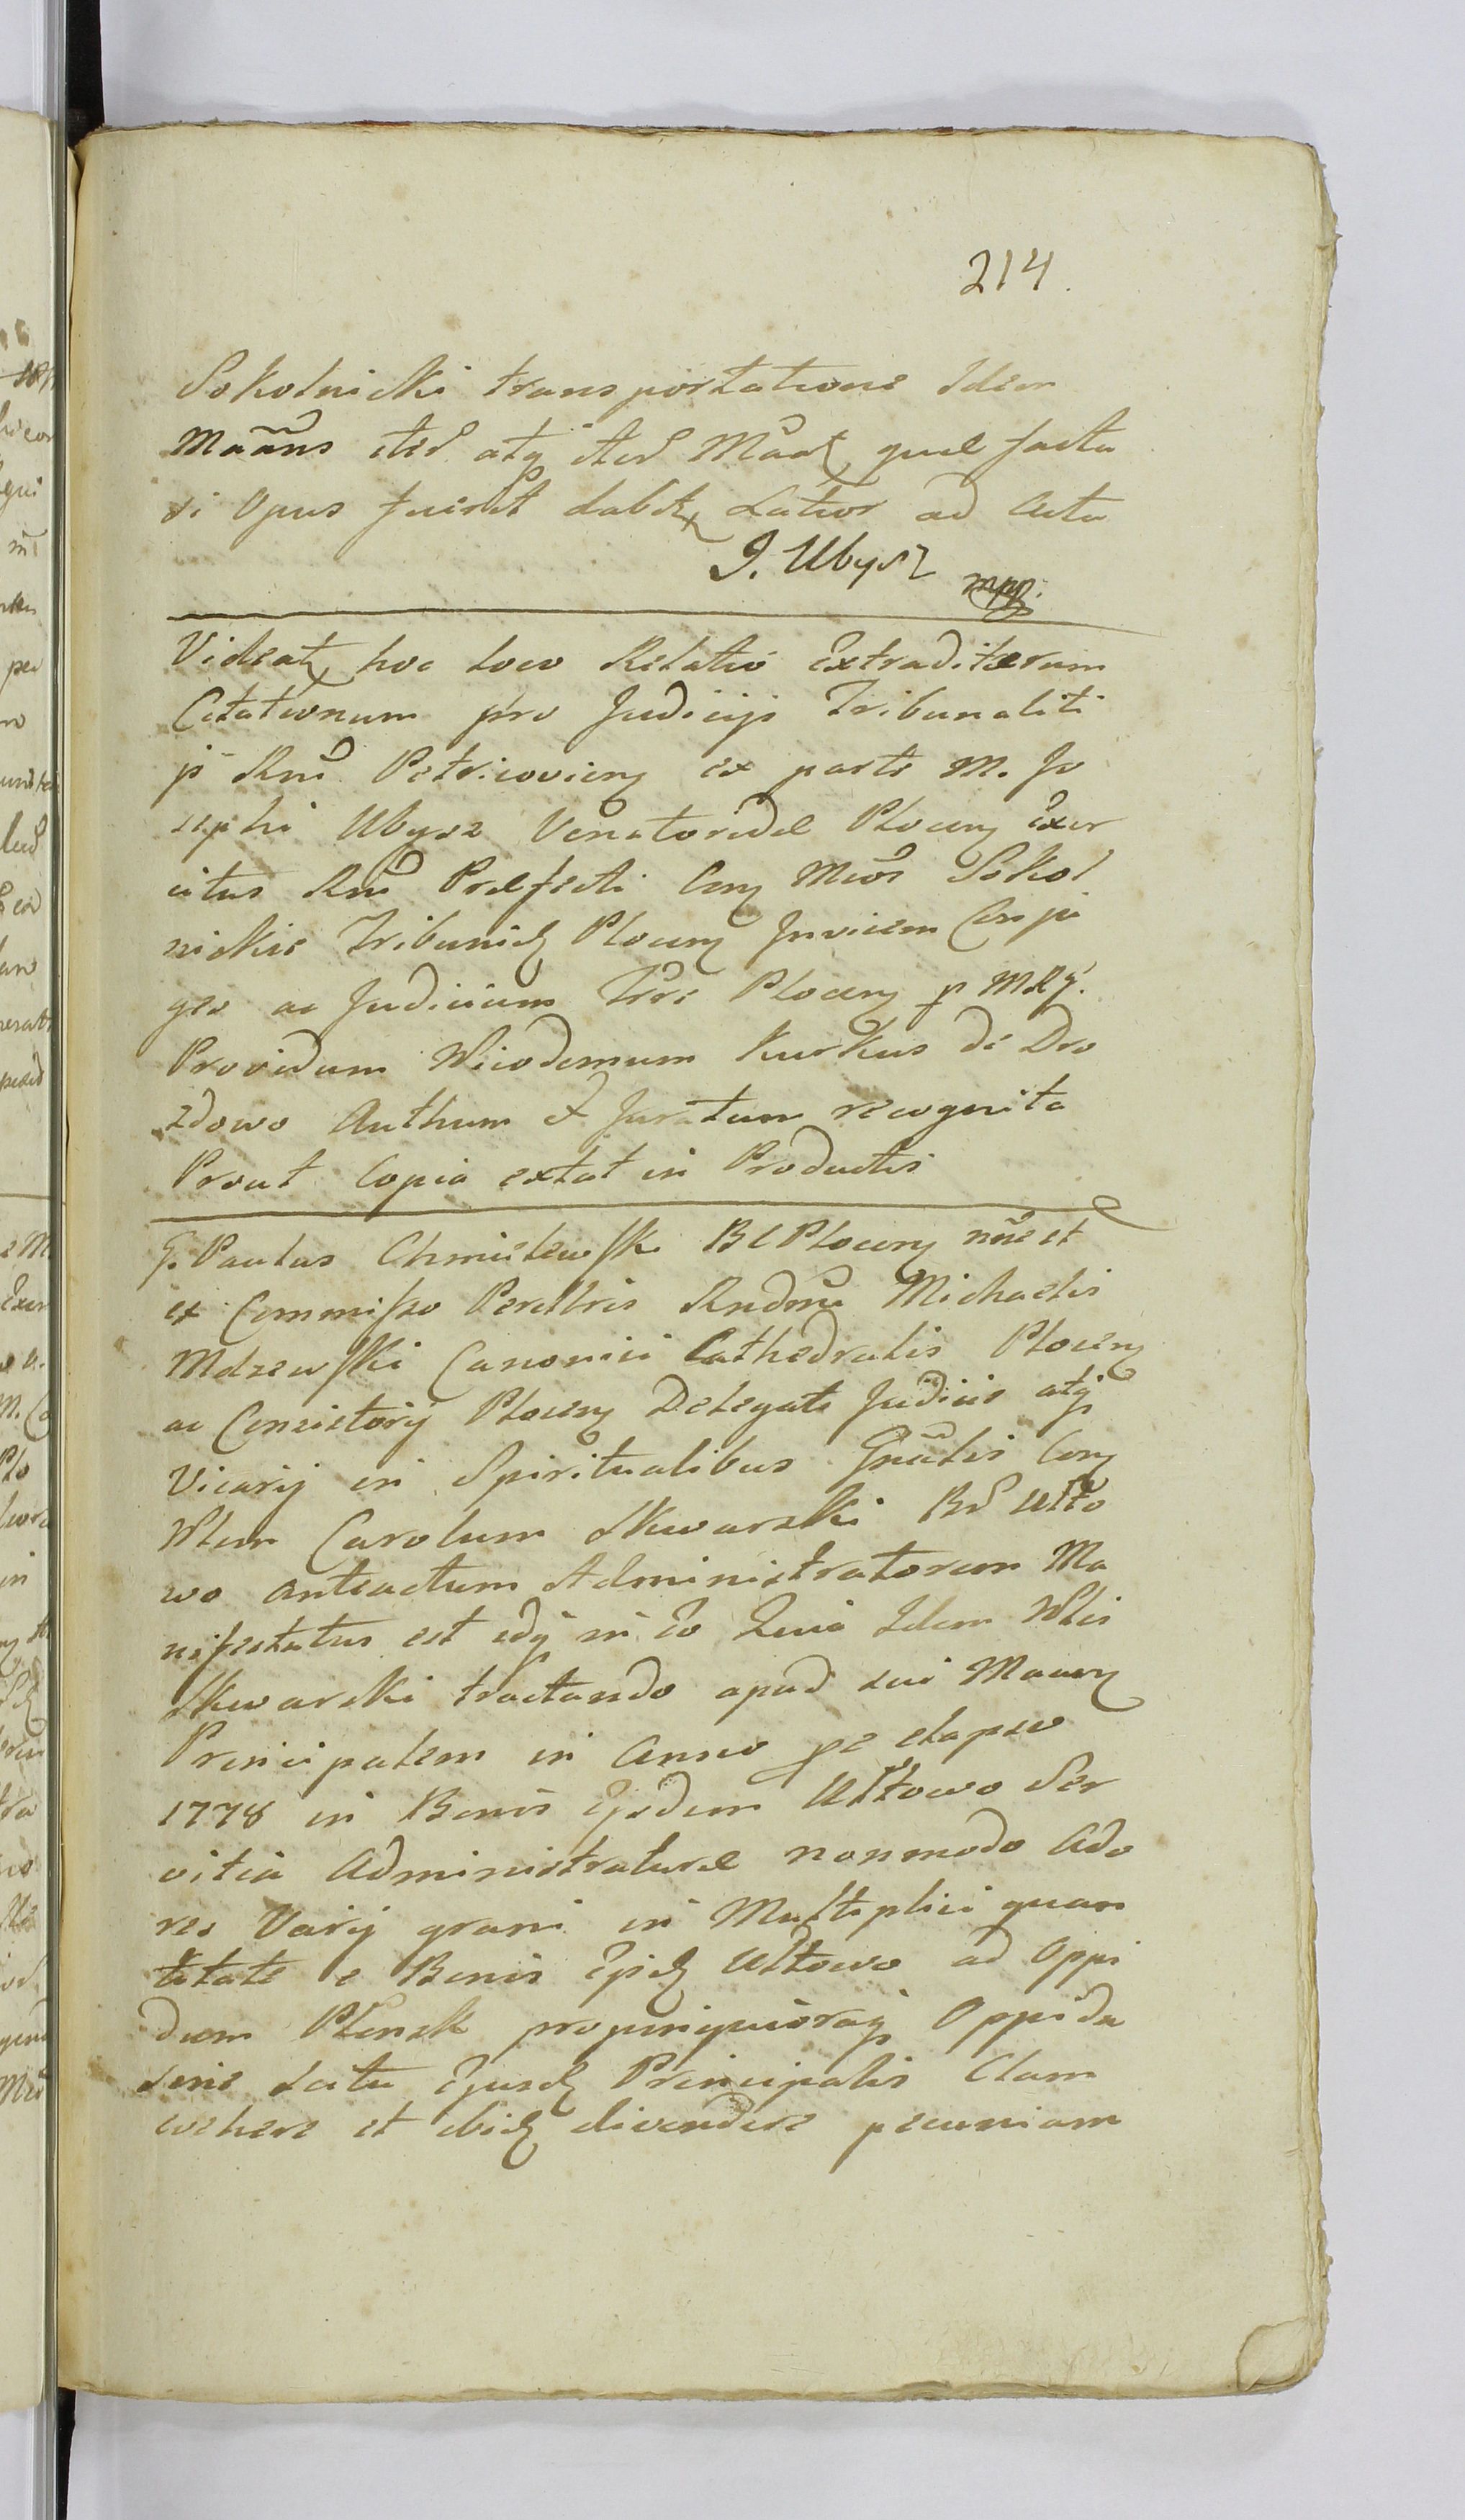 214.
Sokolnicki transportatione Idem
Maãns iter atq iter Maat quæ facta
si Opus fuerit dabit Latior ad Acta
J. Ubysz mpp.
Videat hoc loco Relatio Extraditarum
Citationum pro Judicijs Tribunaliti
js Rni Petricovien ex parte M. Jo
sephi Ubysz Venatoridæ Plocen Exer
citus Rni Præfecti Con Meos Sokol
nickie Tribunid Plocen Invicem Conju
ges ac Judicium Trre Plocen p
Providum Nicodemum Kurkus de Dro
zdowo Authum et Juratum recognita
Prout Copia extat in Productis
G. Paulus Chmielewski B C Plocen nõe et
ex Commisso Perillris Rndmi Michaelis
Mdzewski Canonici Cathedralis Plocen
ac Consistorij Plocen Delegati Judicis atq
Vicarij in Spiritualibus Gnalis Con
Nlem Carolum Skwarski Br Ułto
wo anteactum Administratorem Ma
nifestatus est idq in eo Quia Idem Nlis
Skwarski tractando apud sui Maan
Principalem in Anno pe elapso
1778 in Bonis Ejsdem Ułtowo Ser
vitia Administraturæ nonmodo Ado
res Varij grani in Multiplici quan
titate e Bonis Ejsd Ułtowo ad Oppi
dum Płonsk propinquioraq Oppida
sine scitu Ejusd Principalis Clam
vehere et ibid divendere pecuniam